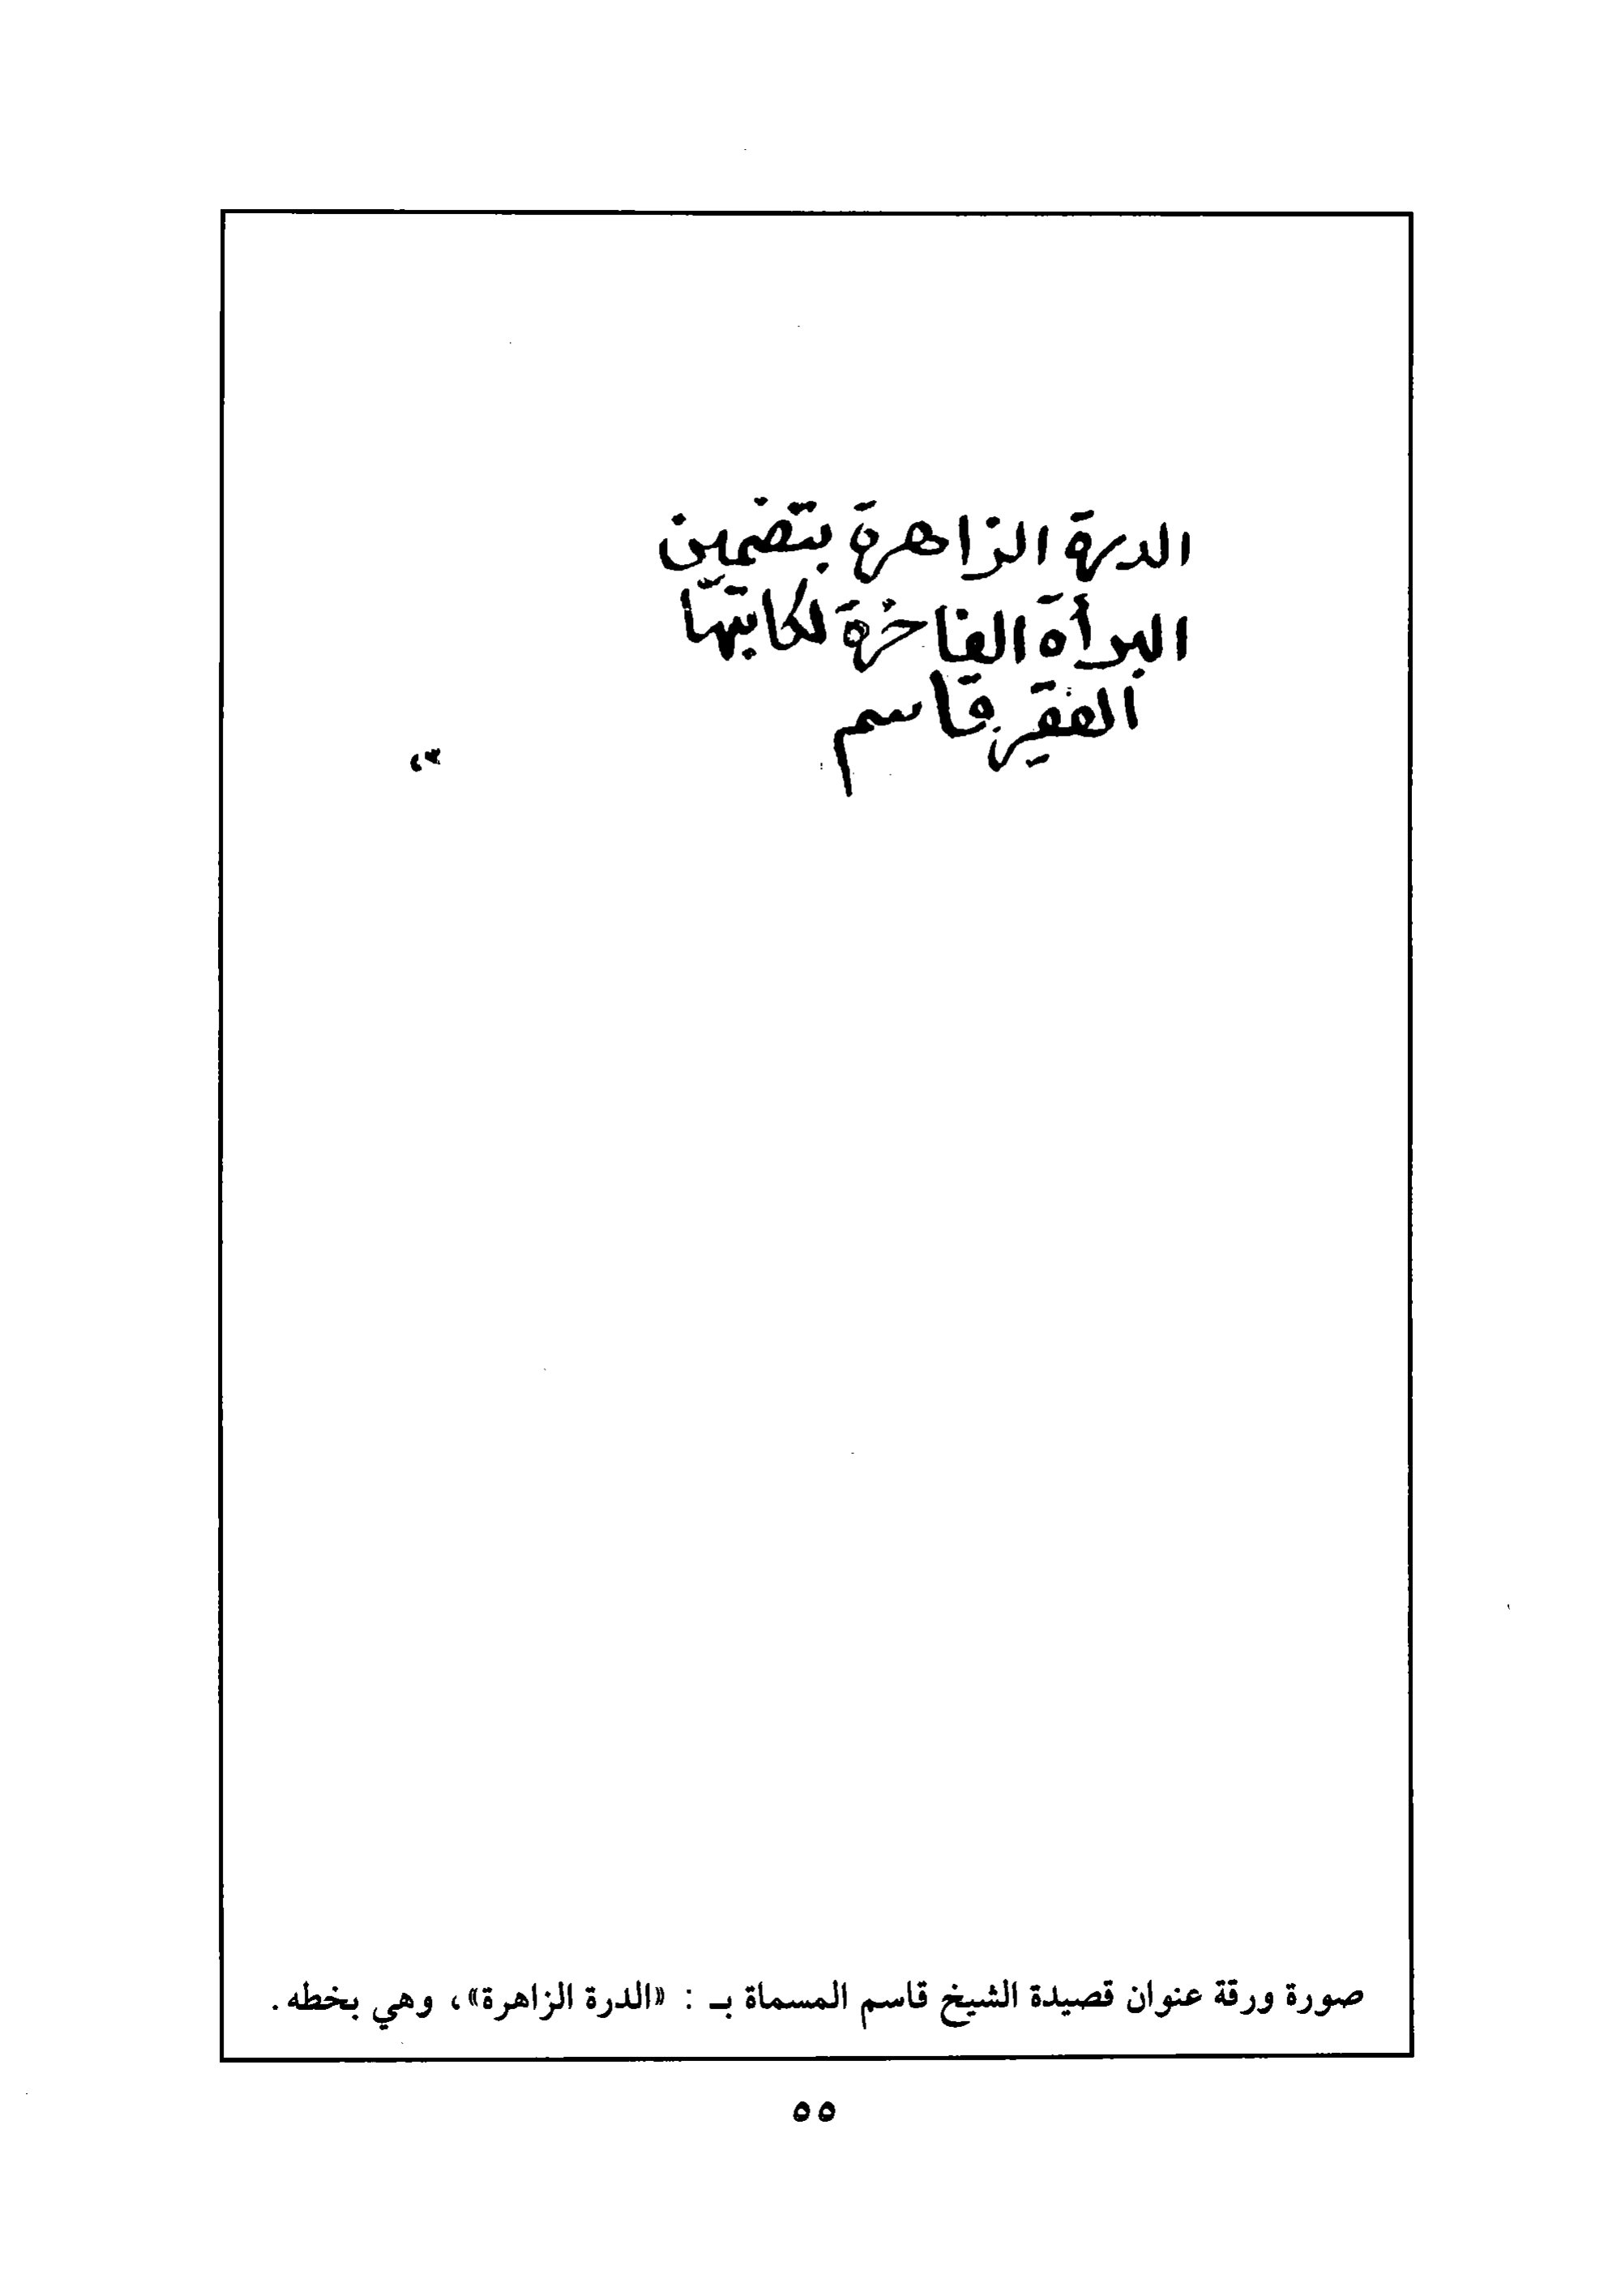 الدرة الزاهرة بتضمين
البرأة الفاخرة لكاتبها
الفقير قاسم
صورة ورقة عنوان قصيدة الشيخ قاسم المسماة بـ : «الدرة الزاهرة»، وهي بخطه.
٥٥